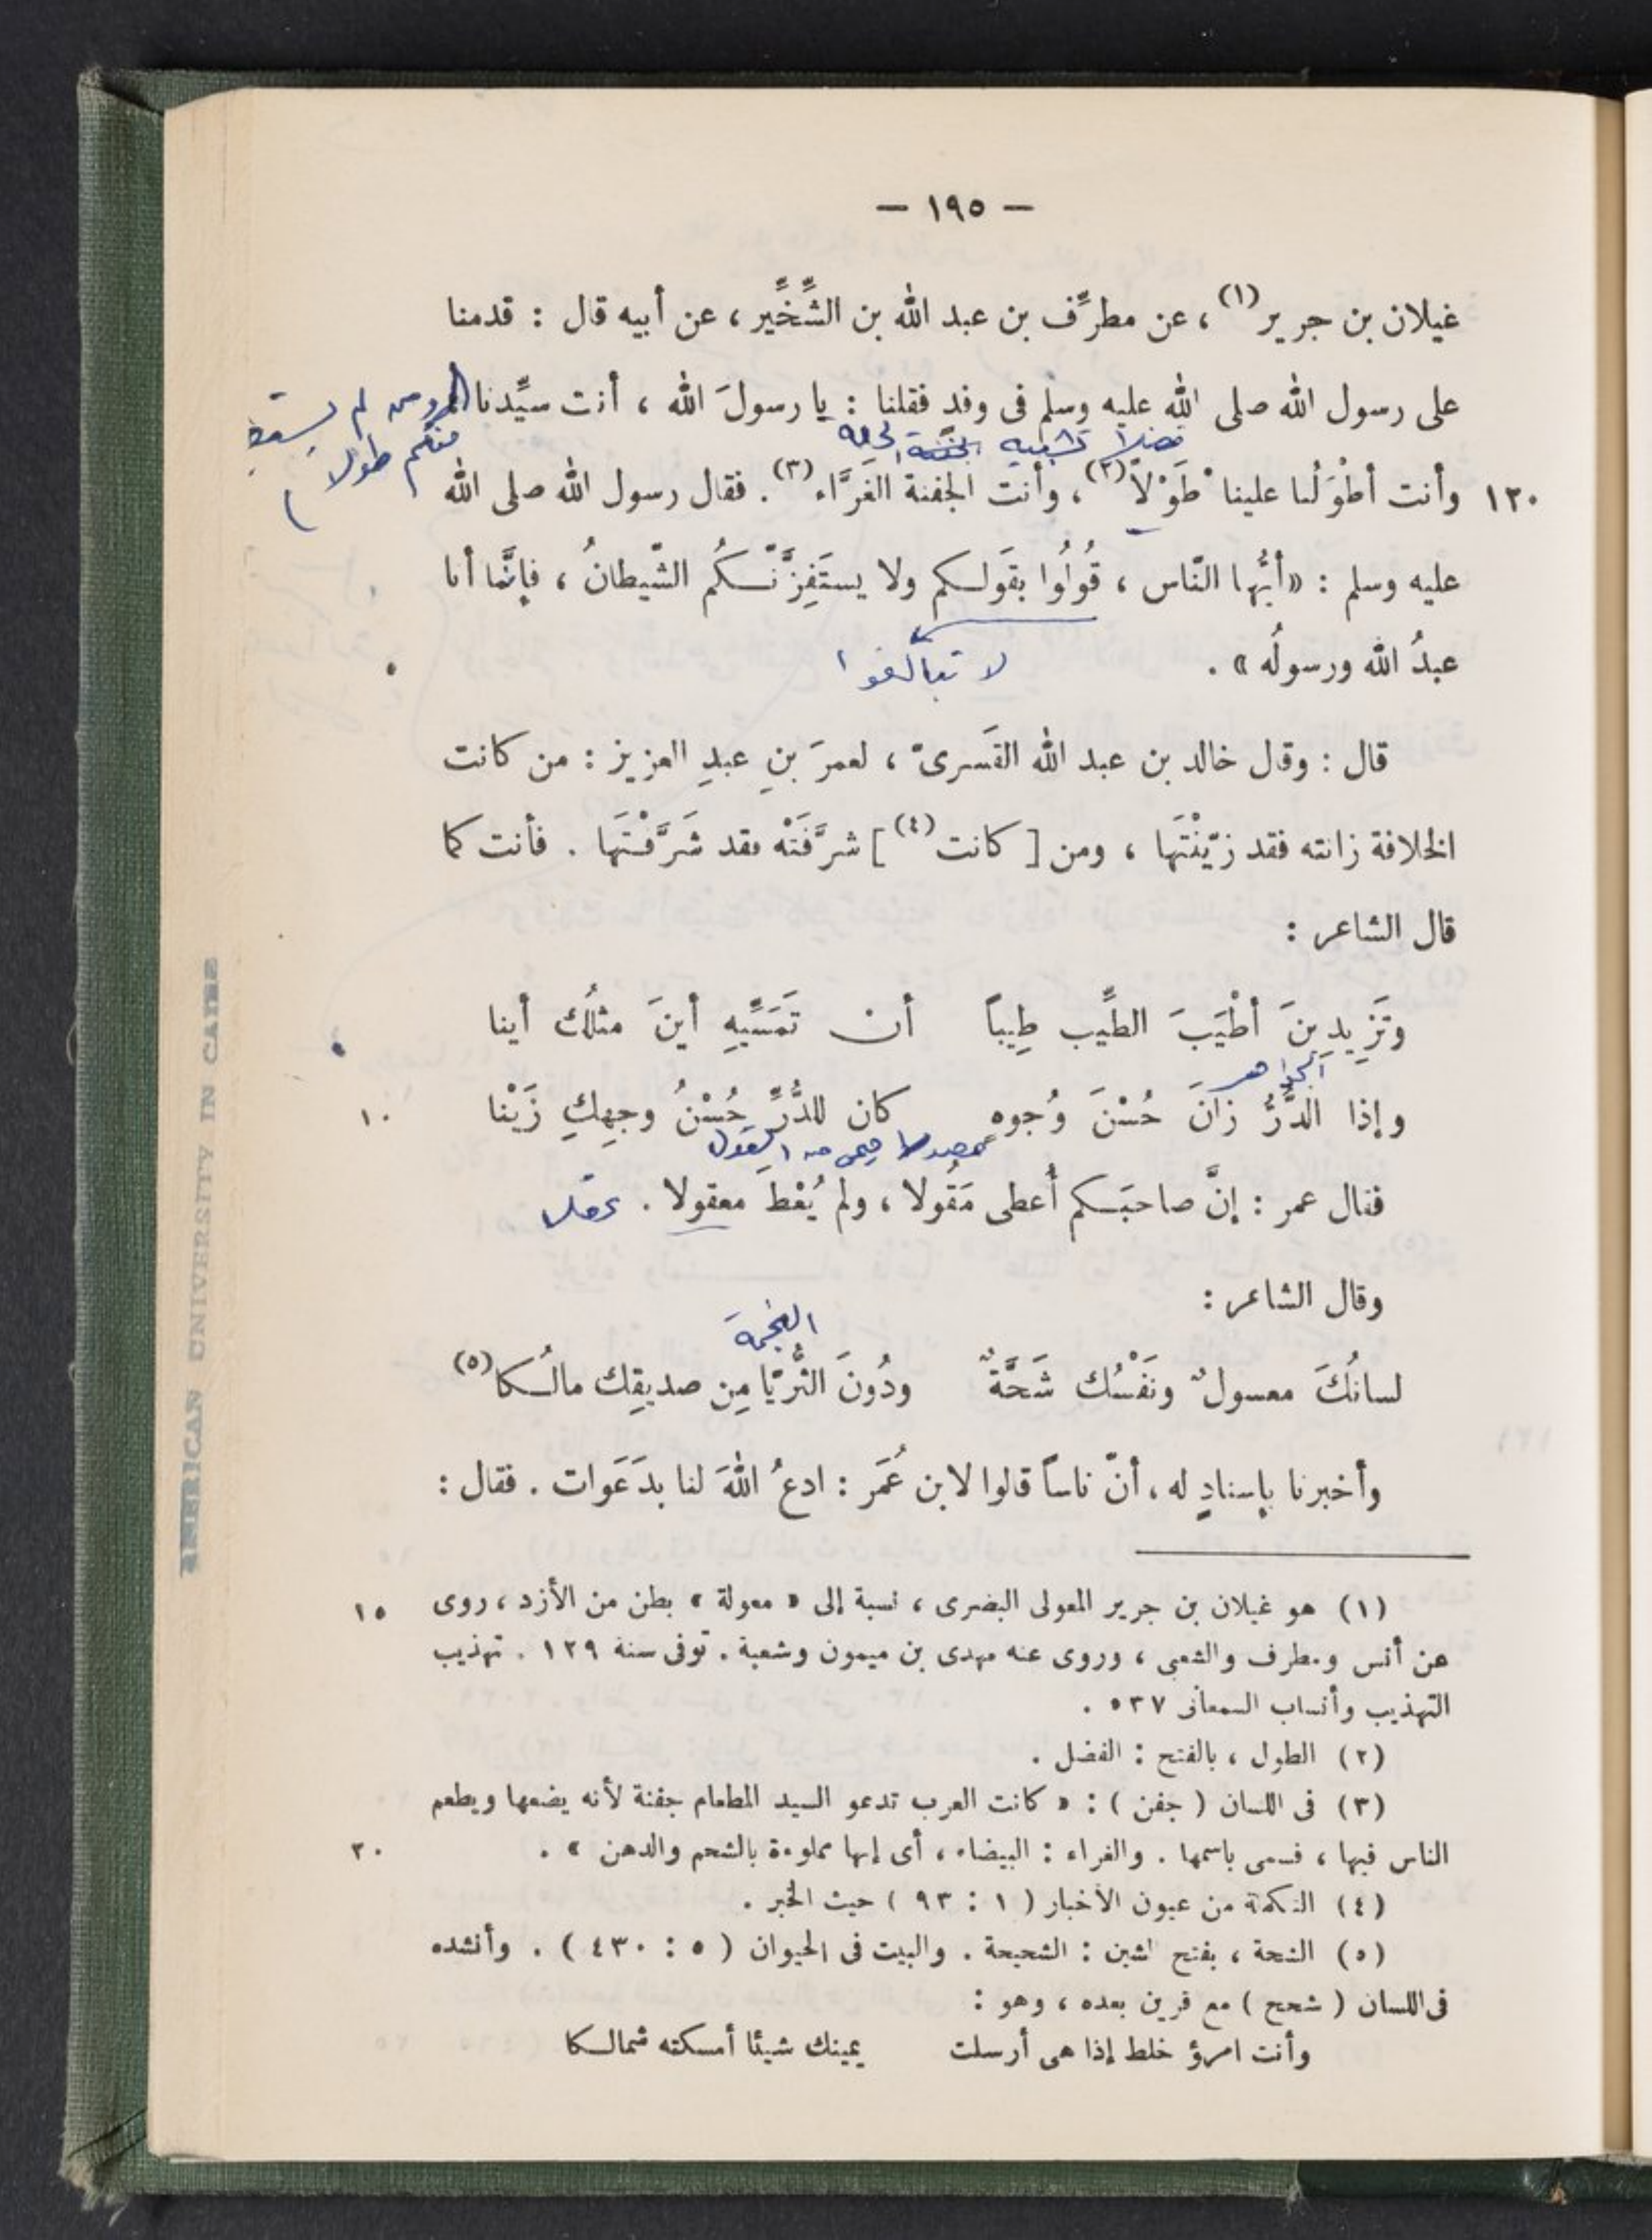 — ١٩٥ —
غيلان بن جرير(١) ، عن مطرِّف بن عبد الله بن الشِّخِّير ، عن أبيه قال : قدمنا
على رسول الله صلى الله عليه وسلم فى وفدٍ فقلنا : يا رسولَ الله ، أنت سيِّدنا
ومن لم يستطع
منكم طولا
فضلا تشبيه
١٢٠ وأنت أطْوَلُنا علينا طَوْلاً(٢) ، وأنت الجفنة الغَرَّاء(٣) . فقال رسول الله صلى الله
عليه وسلم : «أيُّها النّاس ، قُولُوا بقَولكم ولا يستَفِزَّنّكُم الشّيطانُ ، فإنَّما أنا
عبدُ الله ورسولُه » .
لا تبالغوا
قال : وقال خالد بن عبد الله القَسرىّ ، لعمرَ بنِ عبدِ العزيز : من كانت
الخلافة زانته فقد زيّنْتَها ، ومن [ كانت(٤) ] شرَّفَتْه فقد شَرَّفْتَها . فأنت كما
قال الشاعر :
وتَزِيدِينَ أطْيَبَ الطِّيب طِيباً أن تَمَسِّيهِ أينَ مثلُك أينا
الجواهر
وإذا الدُّرُّ زانَ حُسْنَ وُجوهٍ كان للدُّرِّ حُسْنُ وجهِكِ زَيْنا ١٠
القول
فقال عمر : إنَّ صاحبَكم أُعطى مَقُولا ، ولم يُعْطَ معقولا . عقلا
وقال الشاعر :
النجمة
لسانُكَ معسولٌ ونَفْسُك شَحَّةٌ ودُونَ الثُّريّا مِن صديقِك مالُكا(٥)
وأخبرنا بإسنادٍ له ، أنّ ناساً قالوا لابن عُمَر : ادعُ اللهَ لنا بدَعَوات . فقال :
(١) هو غيلان بن جرير المعولى البصرى ، نسبة إلى « معولة » بطن من الأزد ، روى ١٥
عن أنس ومطرف والشعبى ، وروى عنه مهدى بن ميمون وشعبة . توفى سنة ١٢٩ . تهذيب
التهذيب وأنساب السمعانى ٥٣٧ .
(٢) الطول ، بالفتح : الفضل .
(٣) فى اللسان ( جفن ) : « كانت العرب تدعو السيد المطعام جفنة لأنه يضعها ويطعم
الناس فيها ، فسمى باسمها . والغراء : البيضاء ، أى إنها مملوءة بالشحم والدهن » . ٢٠
(٤) التكملة من عيون الأخبار ( ١ : ٩٣ ) حيث الخبر .
(٥) الشحة ، بفتح الشين : الشحيحة . والبيت فى الحيوان ( ٥ : ٤٣٠ ) . وأنشده
فى اللسان ( شحح ) مع قرين بعده ، وهو :
وأنت امرؤ خلط إذا هى أرسلت يمينك شيئا أمسكته شمالكا
AMERICAN UNIVERSITY IN CAIRO